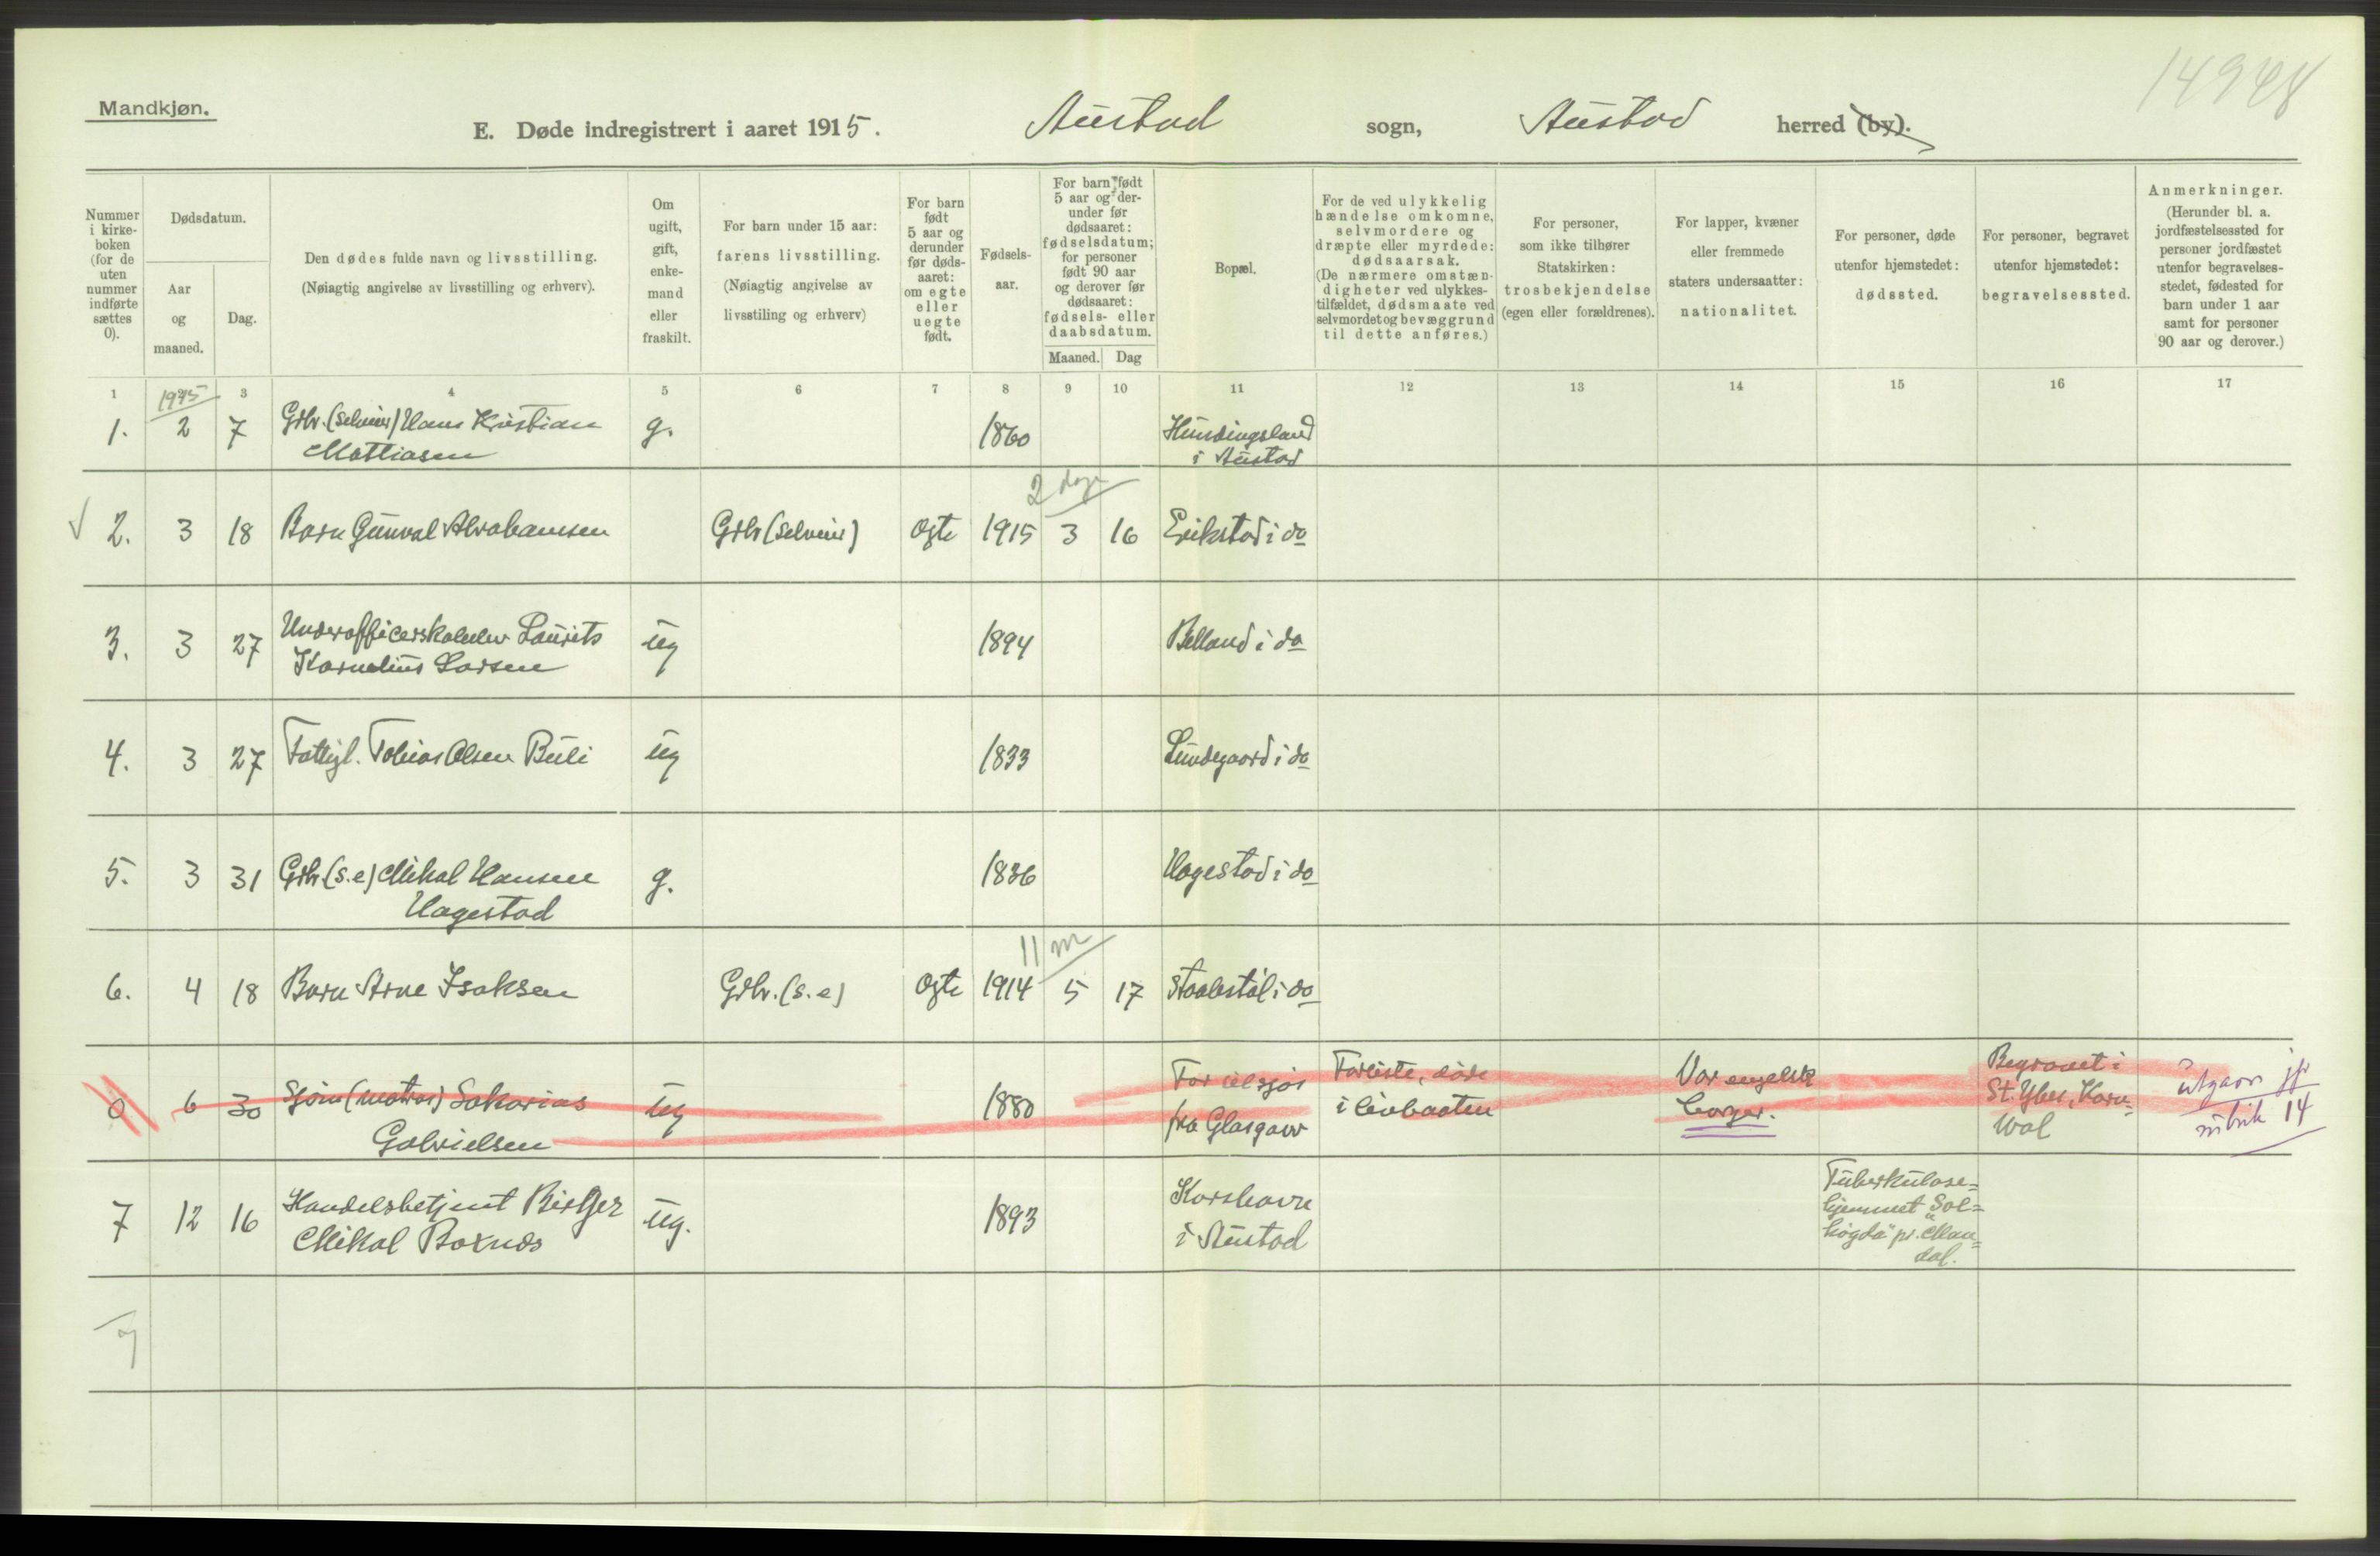 14948
Mandkjøn.
E. Døde indregistrert i aaret 1915. Austad sogn, Austad herred (by).
Nummer i kirke-boken (for de uten nummer indførte sættes 0).
Dødsdatum.
Aar og maaned.
Dag.
Den dødes fulde navn og livsstilling.
(Nøiagtig angivelse av livsstilling og erhverv).
Om ugift, gift, enke-mand eller fraskilt.
For barn under 15 aar: farens livsstilling.
(Nøiagtig angivelse av livsstiling og erhverv)
For barn født 5 aar og derunder før døds-aaret: om egte eller uegte født.
Fødsels-aar.
For barn født 5 aar og der-under før dødsaaret: fødselsdatum; for personer født 90 aar og derover før dødsaaret: fødsels- eller daabsdatum.
Maaned. Dag
Bopæl.
For de ved ulykkelig hændelse omkomne, selvmordere og dræpte eller myrdede: dødsaarsak.
(De nærmere omstæn-digheter ved ulykkes-tilfældet, dødsmaate ved selvmordet og bevæggrund til dette anføres.)
For personer, som ikke tilhører Statskirken: trosbekjendelse (egen eller forældrenes).
For lapper, kvæner eller fremmede staters undersaatter: nationalitet.
For personer, døde utenfor hjemstedet: dødssted.
For personer, begravet utenfor hjemstedet: begravelsessted.
Anmerkninger.
(Herunder bl. a. jordfæstelsessted for personer jordfæstet utenfor begravelses-stedet, fødested for barn under 1 aar samt for personer 90 aar og derover.)
1 3 4 5 6 7 8 9 10 11 12 13 14 15 16 17
1915
1. 2 7 Grbr. (selveier) Hans Kristian g. 1860 Hundingsland
Mattiasen i Austad
2 dage
2. 3 18 Barn Gunval Abrahamsen Grbr (selveier) egte 1915 3 16 Erikstad i do
3. 3 27 Underofficerskoleelev Laurits ug 1894 Belland i do
Kornelius Larsen
4. 3 27 Fattigl. Tobias Olsen Buli ug 1833 Lundegaard i do
5. 3 31 Grbr. (s.e) Mikal Hansen g. 1836 Hagestad i do
Hagestad
11 m
6. 4 18 Barn Arne Isaksen Grbr. (s.e) egte 1914 5 17 Staalestøl i do
0 6 30 Sjøm (matros) Sakarias ug 1880 For tilsjøs Forliste, døde Var engelsk Begravet i utgaar jfr
Gabrielsen fra Glasgow i livbaaten borger. St. Ybes, Korn= rubrik 14
wal
7 12 16 Handelsbetjent Birger ug. 1893 Korshavn Tuberkulose=
Mikal Boxnæs i Austad hjemmet "Sol=
høgda" pr. Man=
dal.